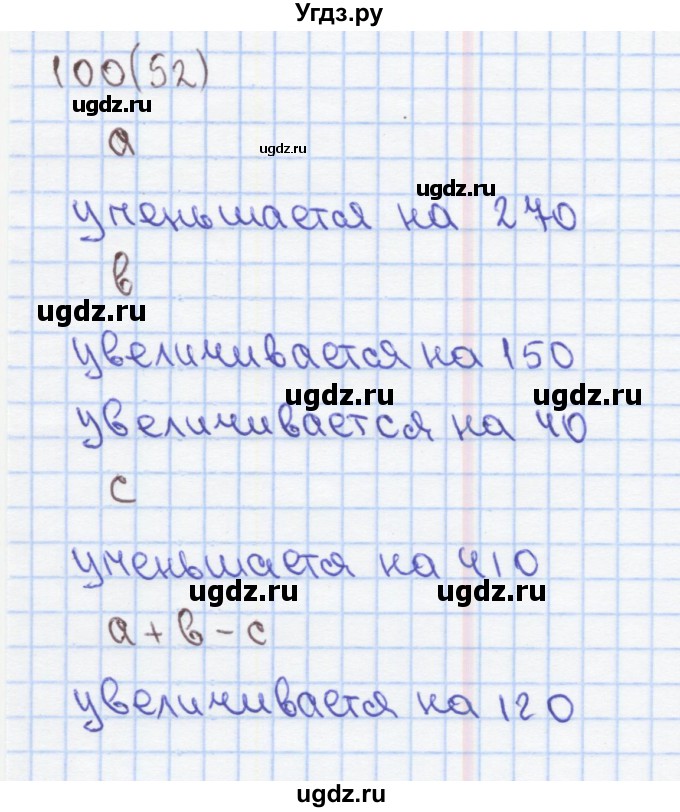 Угдз.ру
100(52)
ugdz.ru
а
ugdz.ru
ugdz.ru
уменьшается на 270
в
ugdz.ru
увеличивается на 150
ugdz.ru
увеличивается на 40
с
уменьшается на 410
ugdz.ru ugdz.ru
а + в - с
увеличивается на 120
ugdz.ru